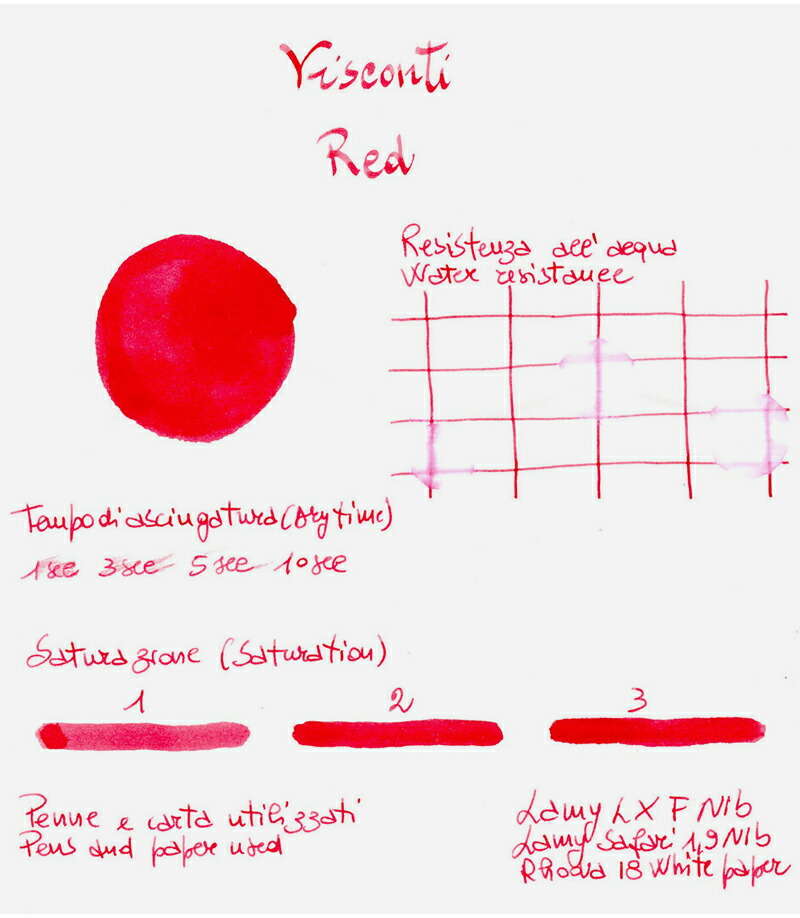 Visconti
Red
Resistenza all'acqua
Water resistance
Tempo di asciugatura (Dry time)
1 sec 3 sec 5 sec 10 sec
Saturazione (Saturation)
1 2 3
Penne e carta utilizzati
Pens and paper used
Lamy LX F Nib
Lamy Safari 1,9 Nib
Rhodia 18 White paper